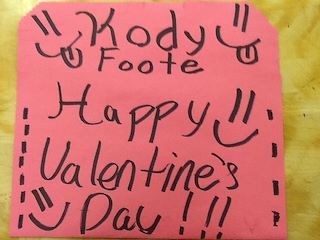 Kody
Foote
Happy
Valentine's
Day!!!